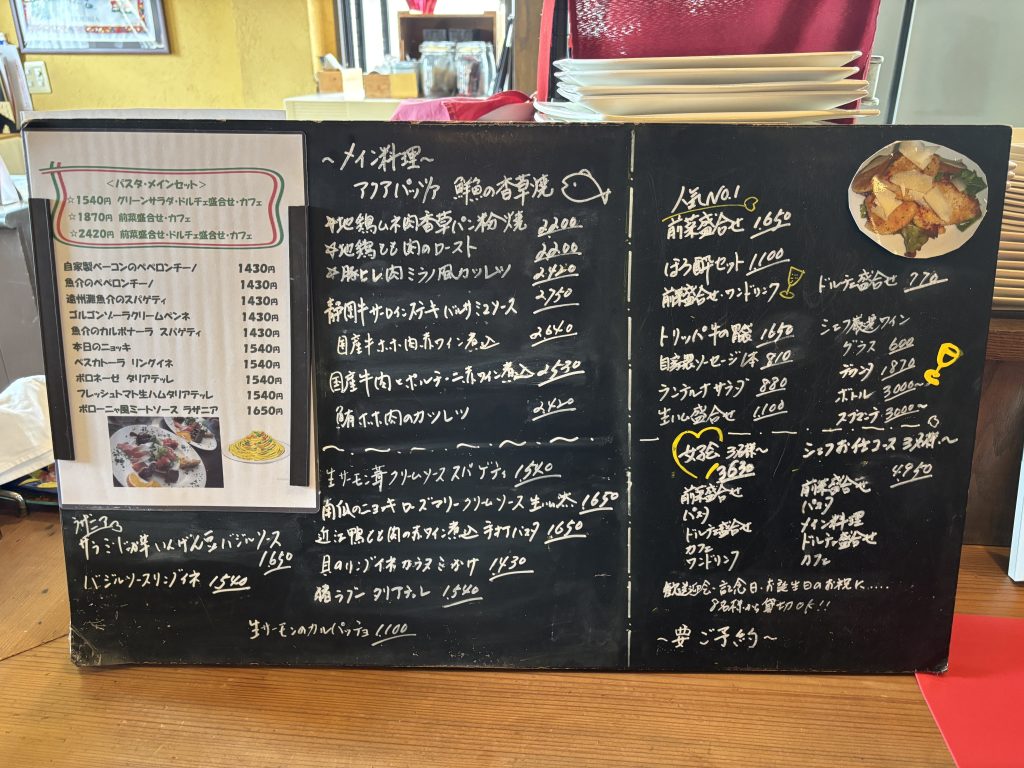 <パスタ・メインセット>
☆1540円 グリーンサラダ・ドルチェ盛合せ・カフェ
☆1870円 前菜盛合せ・カフェ
☆2420円 前菜盛合せ・ドルチェ盛合せ・カフェ
自家製ベーコンのペペロンチーノ 1430円
魚介のペペロンチーノ 1430円
遠州灘魚介のスパゲティ 1430円
ゴルゴンゾーラクリームペンネ 1430円
魚介のカルボナーラ スパゲティ 1430円
本日のニョッキ 1540円
ペスカトーラ リングイネ 1540円
ボロネーゼ タリアテッレ 1540円
フレッシュトマト生ハムタリアテッレ 1540円
ボローニャ風ミートソース ラザニア 1650円
ラザニア
いんげん豆バジルソース 1650
バジルソースリングイネ 1540
生サーモンのカルパッチョ 1100
~メイン料理~
アクアパッツァ 鮮魚の香草焼
☆地鶏ムネ肉香草パン粉焼 2200
☆地鶏もも肉のロースト 2200
☆豚ヒレ肉ミラノ風カツレツ 2420
静岡牛サーロインステーキ バルサミコソース 2750
国産牛ホホ肉赤ワイン煮込 2640
国産牛肉とポルチーニ赤ワイン煮込 2530
鮪ホホ肉のカツレツ 2420
生サーモン茸クリームソーススパゲティ 1540
南瓜のニョキ ローズマリークリームソース 生ハム添 1650
近江鴨もも肉の赤ワイン煮込 手打パスタ 1650
貝のリングイネ カラスミかけ 1430
猪ラグー タリアテレ 1540
人気No.1
前菜盛合せ 1650
ほろ酔セット 1100
前菜盛合せ・ワンドリンク
トリッパ 牛の 1650
自家製ソーセージ1本 810
サラダ 880
生ハム盛合せ 1100
ドルチェ盛合せ 770
シェフ厳選ワイン
グラス 600
デカンタ 1870
ボトル 3000~
スプマンテ 3000~
女子会 3名様~
3630
前菜盛合せ
パスタ
ドルチェ盛合せ
カフェ
ワンドリンク
シェフお任せコース 3名様~
4950
前菜盛合せ
パスタ
メイン料理
ドルチェ盛合せ
カフェ
歓送迎会・記念日・お誕生日のお祝に.....
8名様から貸切OK!!
~要ご予約~